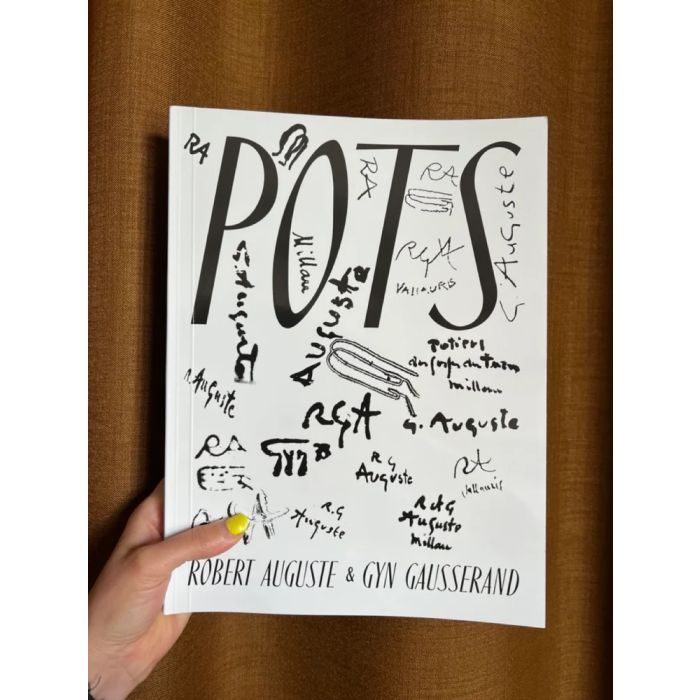 POTS
RA
RA
RA
G. Auguste
Millau
RGA
VALLAURIS
G. Auguste
Auguste
Potiers
Millau
R Auguste
RGA
G. Auguste
RA
Gyn
R G
Auguste
RA
Vallauris
R.G
Auguste
R et G
Auguste
Millau
ROBERT AUGUSTE & GYN GAUSSERAND